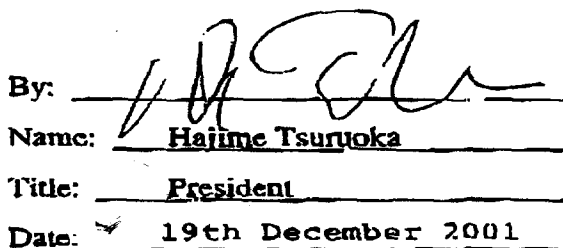 By:
Name: Hajime Tsuruoka
Title: President
Date: 19th December 2001